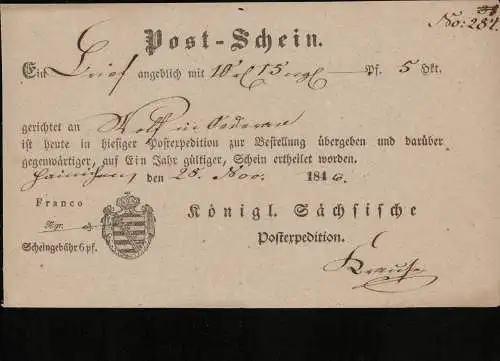 No: 287.
Post-Schein.
Ein Brief angeblich mit 10 15 Pf. 5 Lkt.
gerichtet an Wolf in Oederan
ist heute in hiesiger Postexpedition zur Bestellung übergeben und darüber
gegenwärtiger, auf Ein Jahr gültiger, Schein ertheilet worden.
Hainichen, den 25. Nov. 1846.
Franco
Ngr.
Scheingebühr 6 pf.
Königl. Sächsische
Postexpedition.
Krause